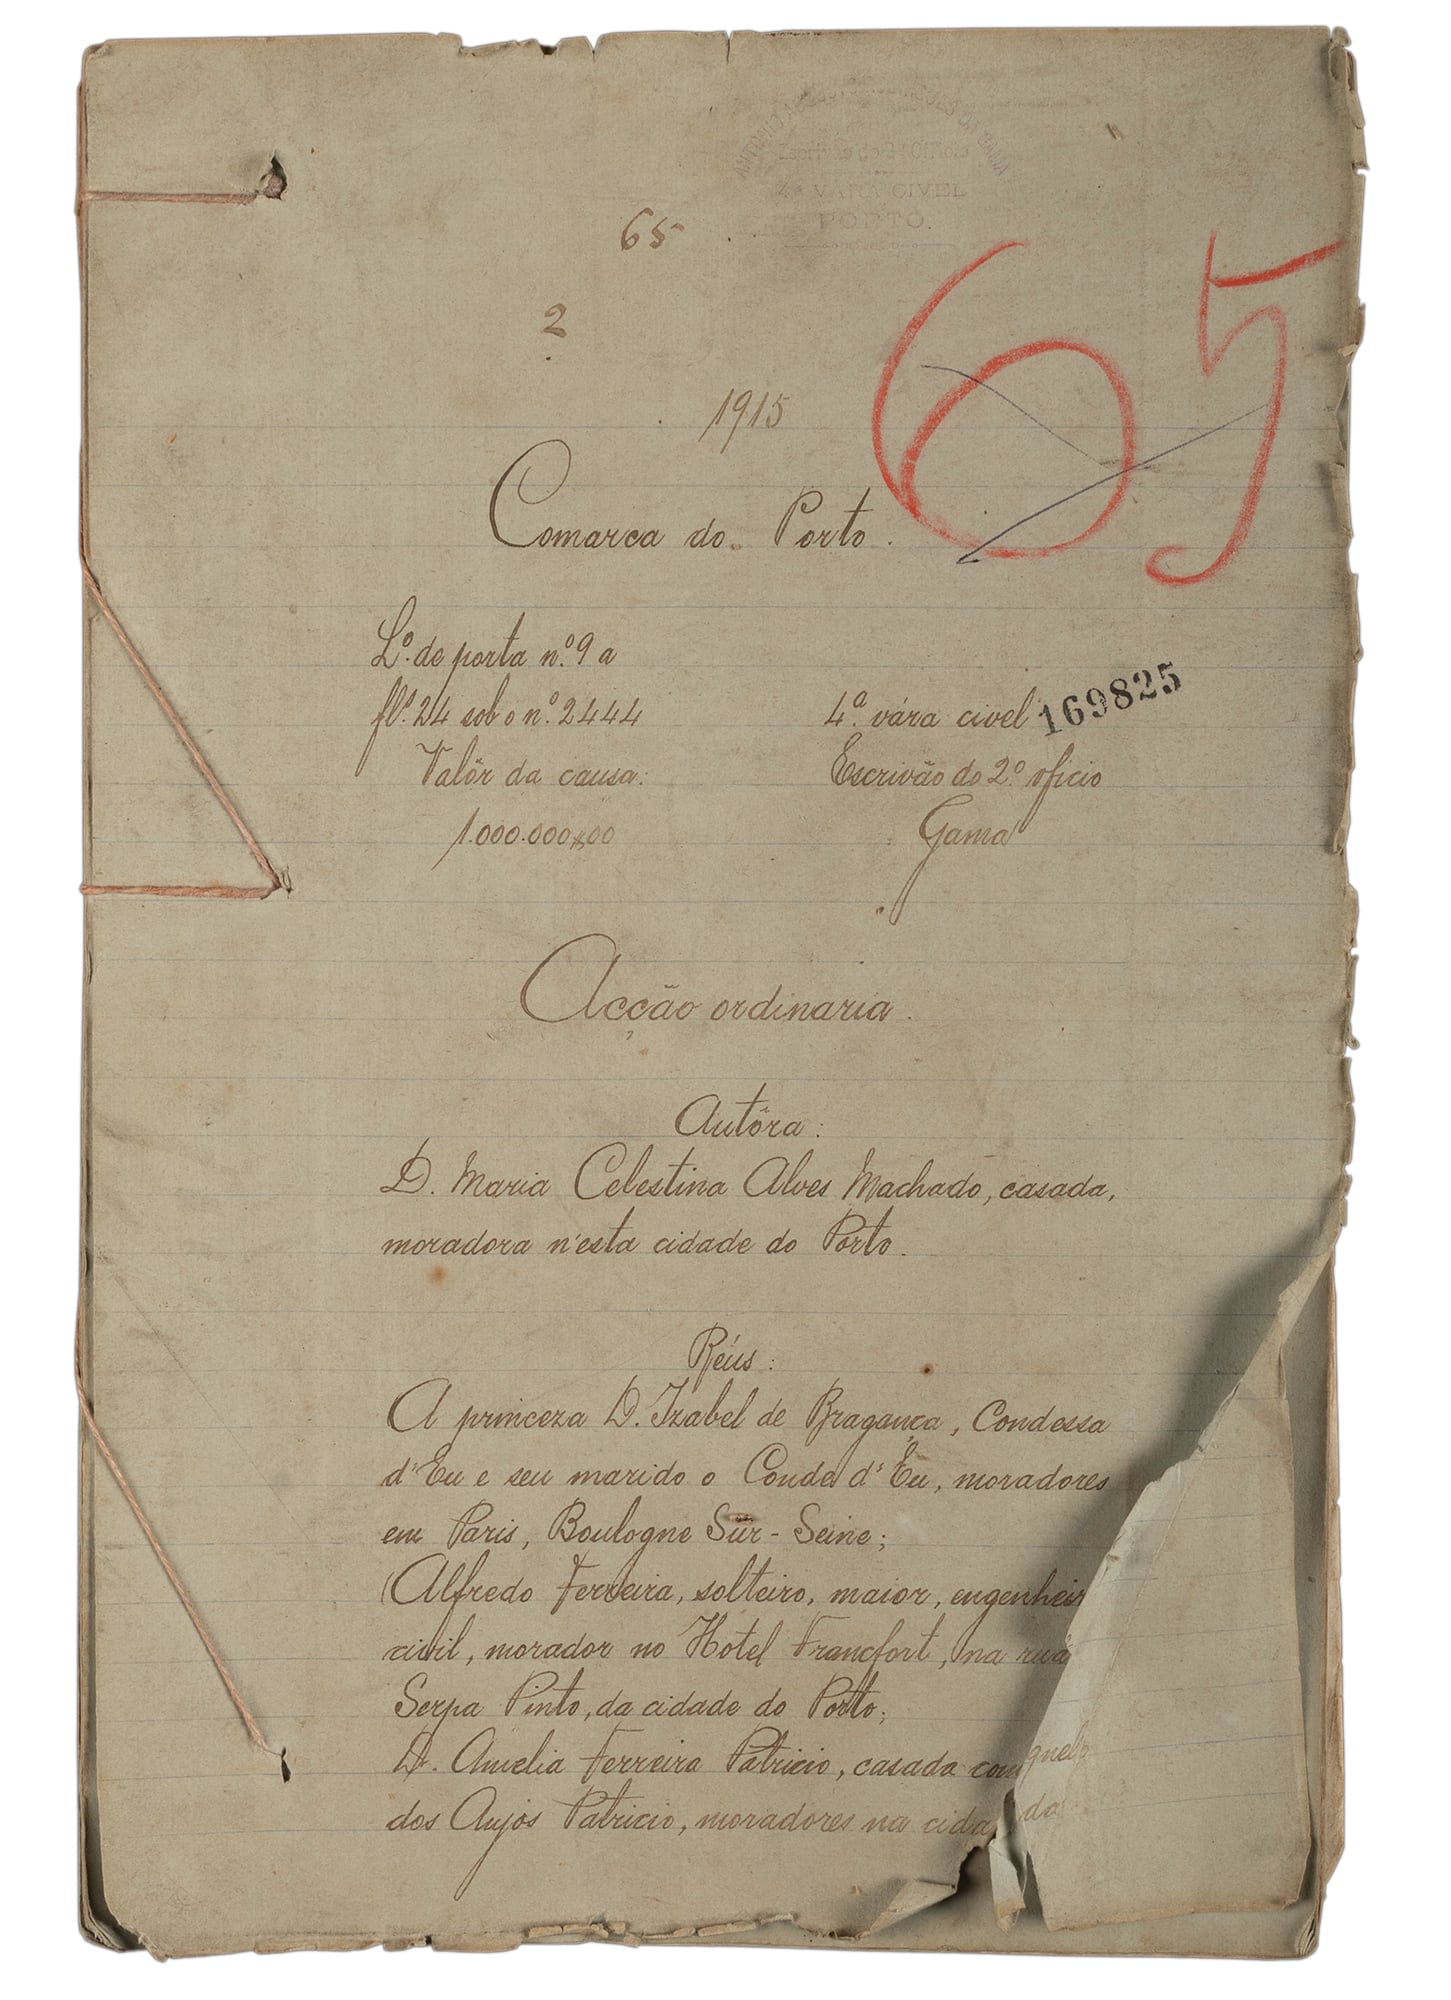 4ª VARA CIVEL
PORTO.
65
65
2
1915
Comarca do Porto.
L.º de porta n.º 9 a
fl.s 24 sob o n.º 2444
Valôr da causa:
1.000.000$00
4.ª vára civel
169825
Escrivão do 2.º oficio
Gama
Acção ordinaria.
Autôra:
D. Maria Celestina Alves Machado, casada,
moradora n'esta cidade do Porto.
Réus:
A princeza D. Izabel de Bragança, Condessa
d'Eu e seu marido o Conde d'Eu, moradores
em Paris, Boulogne Sur-Seine;
Alfredo Ferreira, solteiro, maior, engenheir
civil, morador no Hotel Francfort, na rua
Serpa Pinto, da cidade do Porto;
D. Amelia Ferreira Patricio, casada com
dos Anjos Patricio, moradores na cida da